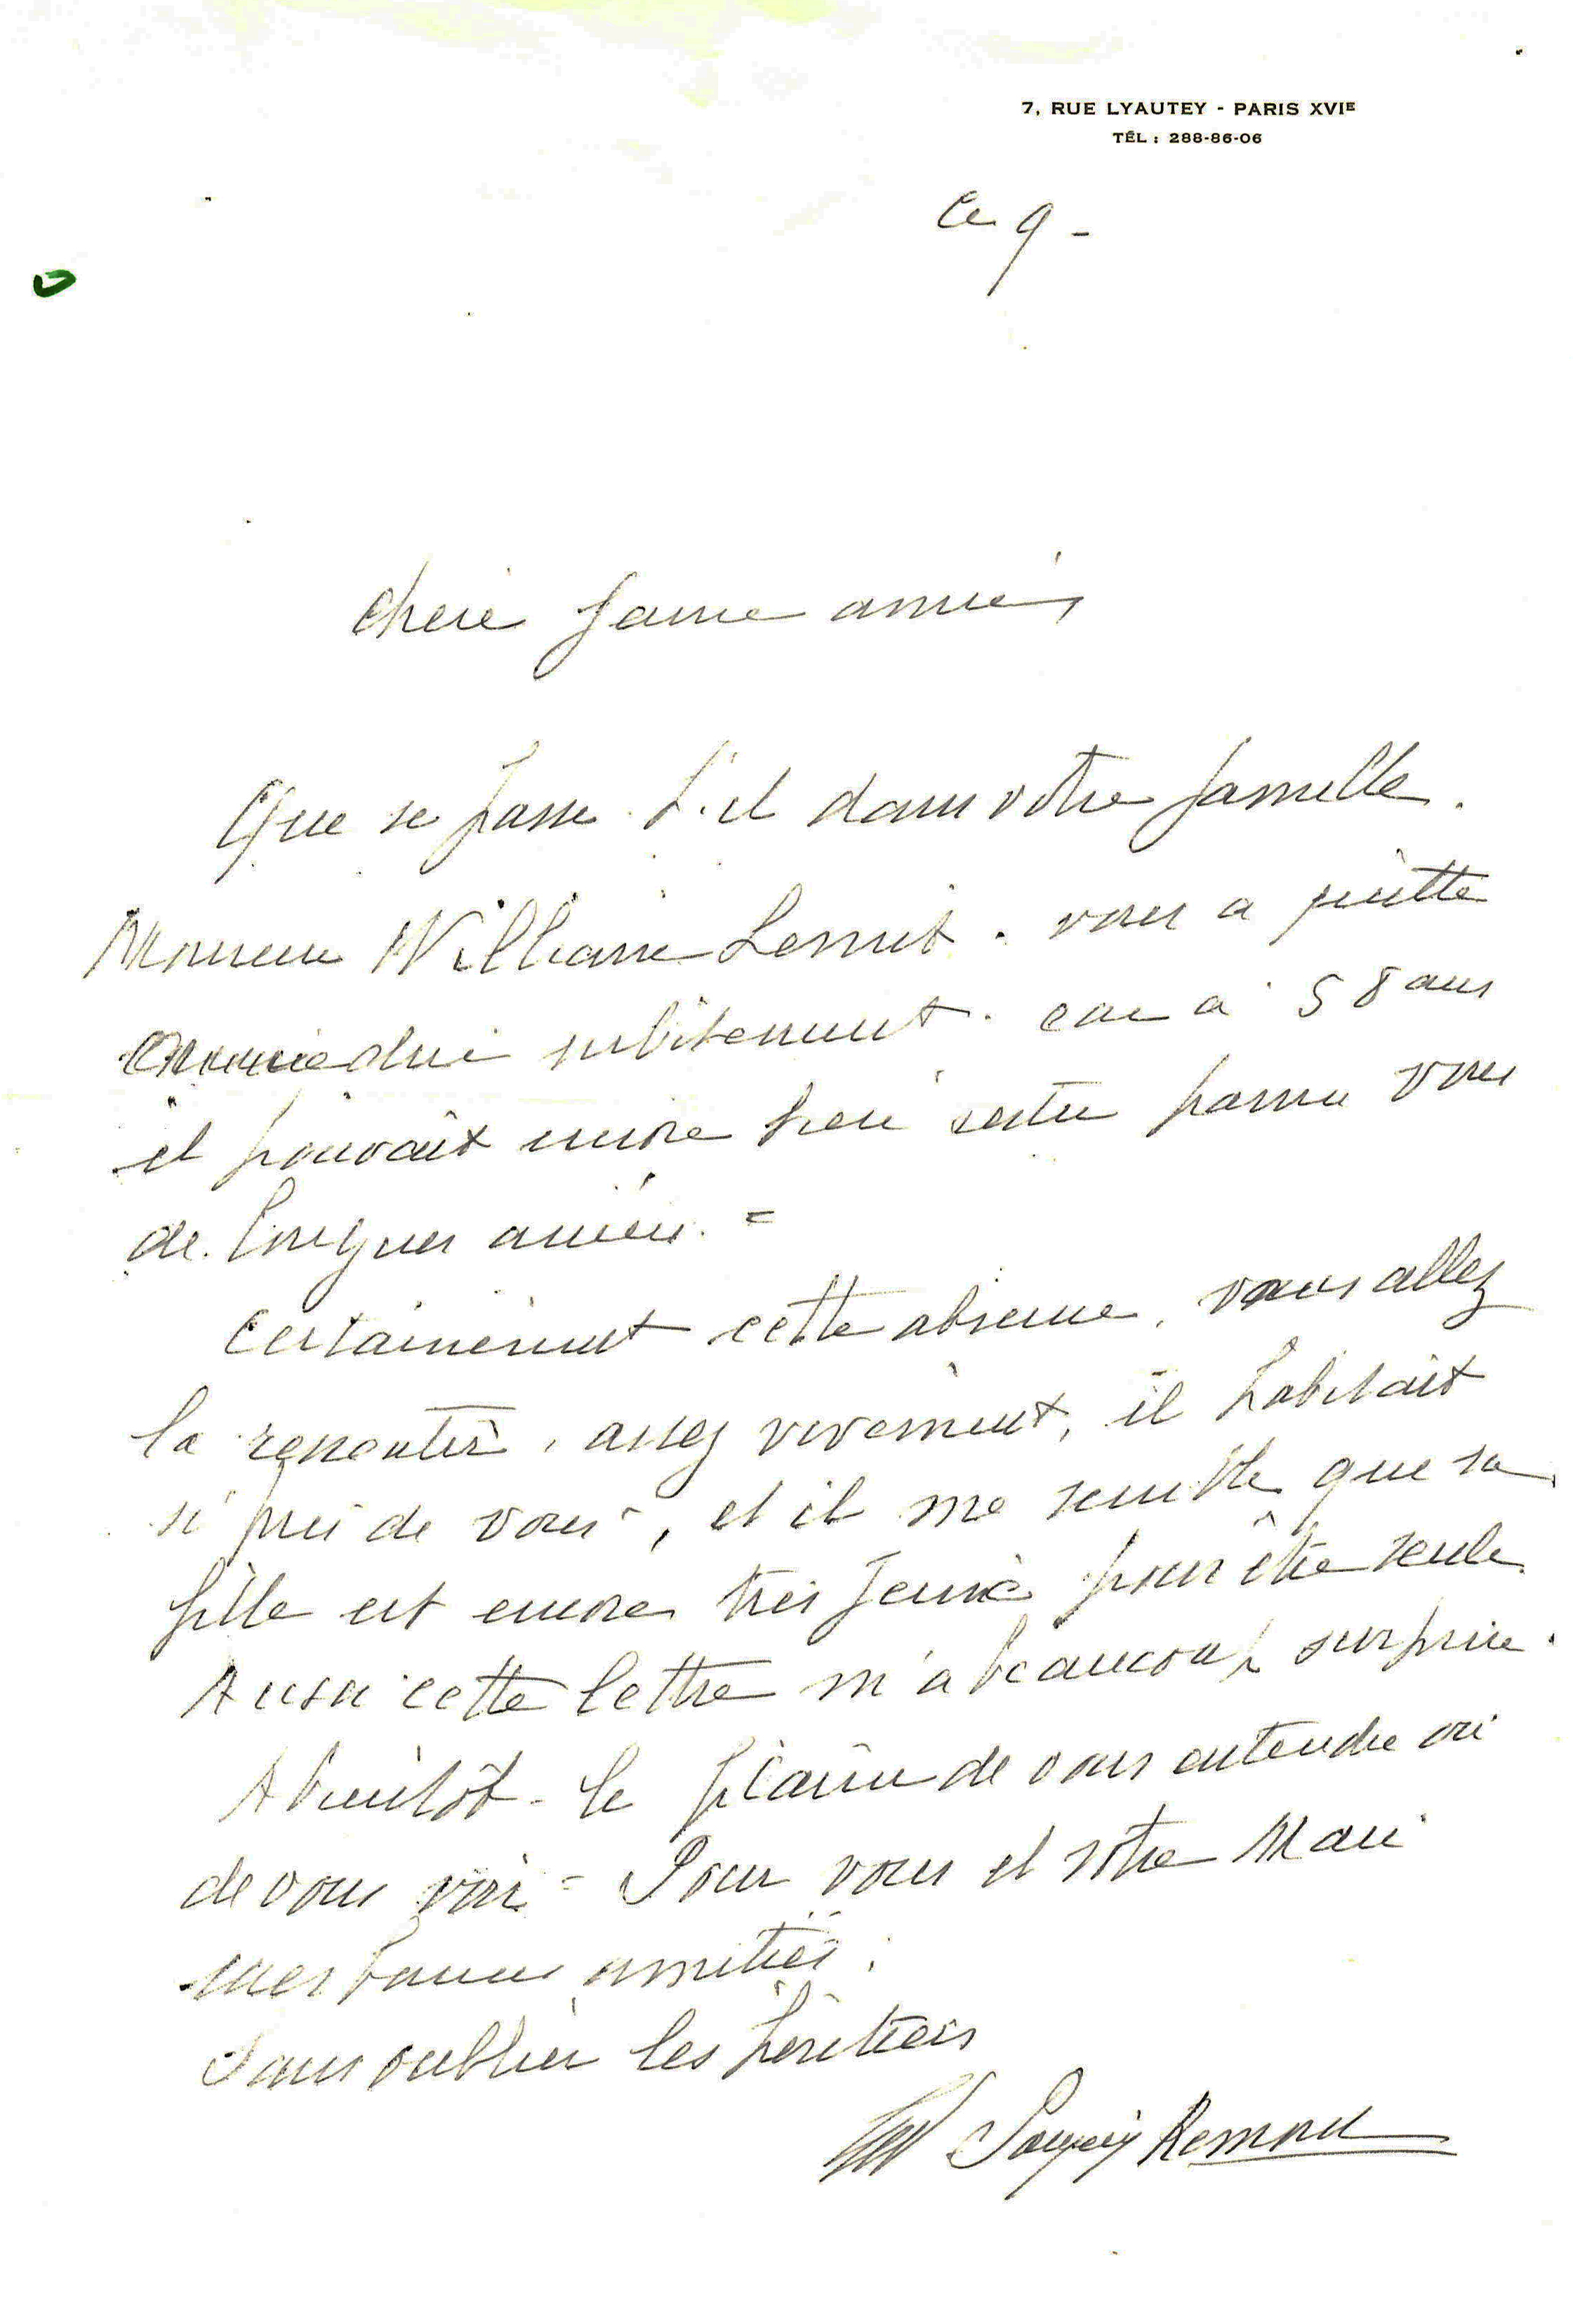 7, RUE LYAUTEY - PARIS XVIE
TÉL : 288-86-06
Ce 9 -
Chère Jeune amie,
Que se passe t'il dans votre famille.
Monsieur William Lemit. vous a quitté
subitement. car à 58 ans
il pouvait encore bien rester parmi vous
de longues années. =
Certainement cette absence, vous allez
la ressentir, assez vivement, il habitait
si près de vous, et il me semble que sa
fille est encore très jeune pour être seule
Aussi cette lettre m'a beaucoup surprise.
A bientôt - le plaisir de vous entendre ou
de vous voir = Pour vous et votre Mari
mes bonnes amitiés.
Sans oublier les héritiers